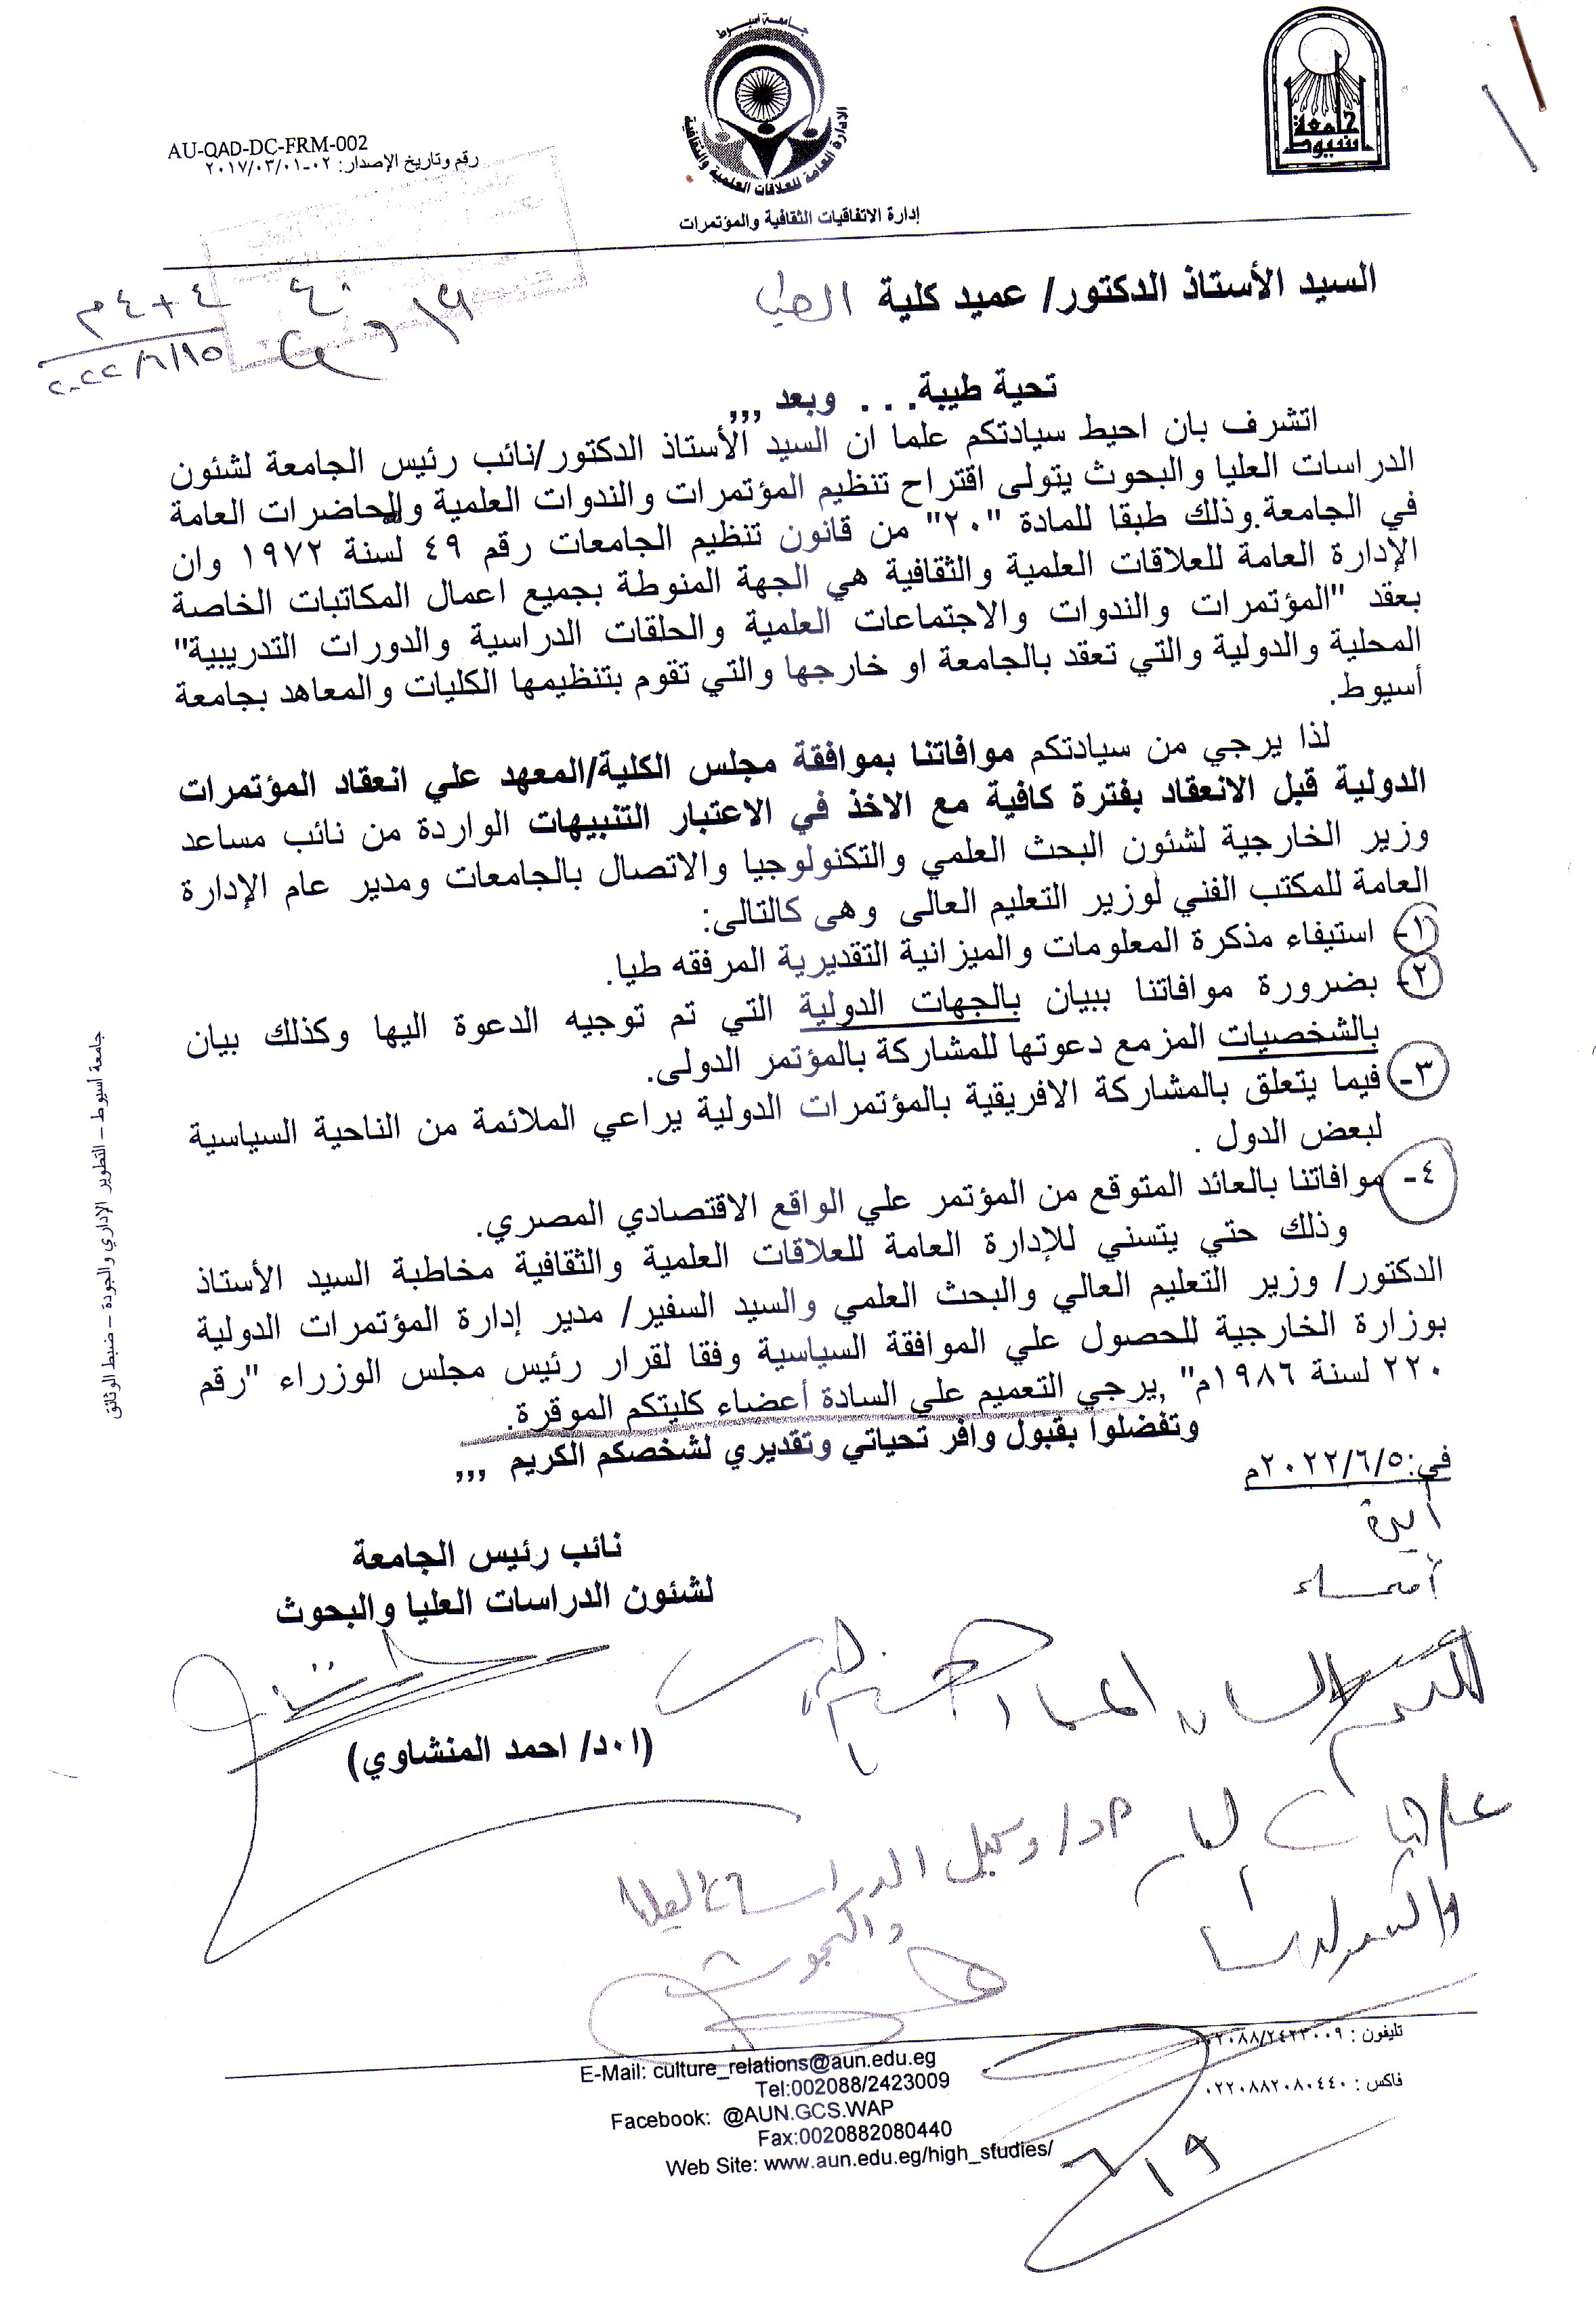 جامعة أسيوط
الإدارة العامة للعلاقات العلمية والثقافية
إدارة الاتفاقيات الثقافية والمؤتمرات
جامعة أسيوط
AU-QAD-DC-FRM-002
رقم وتاريخ الإصدار: ٠٢-٢٠١٧/٠٣/٠١
٤٠
٤+٤م
٢٠٢٢/٦/١٥
السيد الأستاذ الدكتور/ عميد كلية الطب
تحية طيبة. . . وبعد ,,,
اتشرف بان احيط سيادتكم علما ان السيد الأستاذ الدكتور/نائب رئيس الجامعة لشئون
الدراسات العليا والبحوث يتولى اقتراح تنظيم المؤتمرات والندوات العلمية والمحاضرات العامة
في الجامعة.وذلك طبقا للمادة "٢٠" من قانون تنظيم الجامعات رقم ٤٩ لسنة ١٩٧٢ وان
الإدارة العامة للعلاقات العلمية والثقافية هي الجهة المنوطة بجميع اعمال المكاتبات الخاصة
بعقد "المؤتمرات والندوات والاجتماعات العلمية والحلقات الدراسية والدورات التدريبية"
المحلية والدولية والتي تعقد بالجامعة او خارجها والتي تقوم بتنظيمها الكليات والمعاهد بجامعة
أسيوط.
لذا يرجي من سيادتكم موافاتنا بموافقة مجلس الكلية/المعهد علي انعقاد المؤتمرات
الدولية قبل الانعقاد بفترة كافية مع الاخذ في الاعتبار التنبيهات الواردة من نائب مساعد
وزير الخارجية لشئون البحث العلمي والتكنولوجيا والاتصال بالجامعات ومدير عام الإدارة
العامة للمكتب الفني لوزير التعليم العالى وهى كالتالى:
١- استيفاء مذكرة المعلومات والميزانية التقديرية المرفقه طيا.
٢- بضرورة موافاتنا ببيان بالجهات الدولية التي تم توجيه الدعوة اليها وكذلك بيان
بالشخصيات المزمع دعوتها للمشاركة بالمؤتمر الدولى.
٣- فيما يتعلق بالمشاركة الافريقية بالمؤتمرات الدولية يراعي الملائمة من الناحية السياسية
لبعض الدول .
٤- موافاتنا بالعائد المتوقع من المؤتمر علي الواقع الاقتصادي المصري.
وذلك حتي يتسني للإدارة العامة للعلاقات العلمية والثقافية مخاطبة السيد الأستاذ
الدكتور/ وزير التعليم العالي والبحث العلمي والسيد السفير/ مدير إدارة المؤتمرات الدولية
بوزارة الخارجية للحصول علي الموافقة السياسية وفقا لقرار رئيس مجلس الوزراء "رقم
٢٢٠ لسنة ١٩٨٦م" ,يرجي التعميم علي السادة أعضاء كليتكم الموقرة.
وتفضلوا بقبول وافر تحياتي وتقديري لشخصكم الكريم ,,,
في:٢٠٢٢/٦/٥م
نائب رئيس الجامعة
لشئون الدراسات العليا والبحوث
(ا٠د/ احمد المنشاوي)
وكيل الدراسات العليا
والبحوث
٦/٩
جامعة أسيوط – التطوير الإداري والجودة – ضبط الوثائق
تليفون : ٠٠٢٠٨٨/٢٤٢٣٠٠٩
فاكس : ٠٢٢٠٨٨٢٠٨٠٤٤٠
E-Mail: culture_relations@aun.edu.eg
Tel:002088/2423009
Facebook: @AUN.GCS.WAP
Fax:0020882080440
Web Site: www.aun.edu.eg/high_studies/